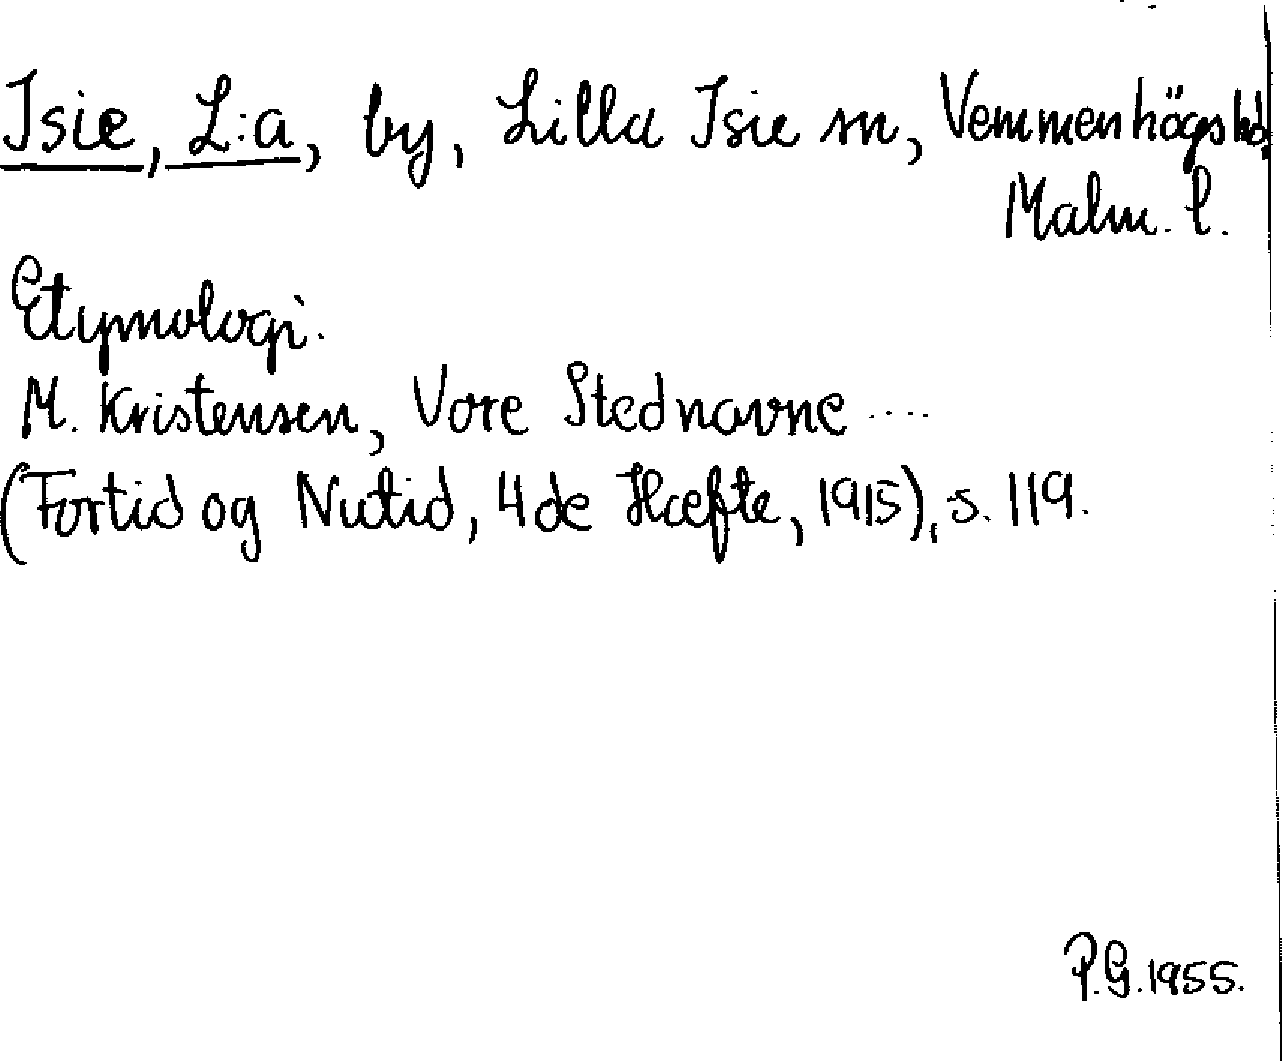 Isie, L:a, by, Lilla Isie sn, Vemmenhögs hd,
Malm. l.
Etymologi.
M. Kristensen, Vore Stednavne ....
(Fortid og Nutid, 4de Hæfte, 1915), s. 119.
P.G. 1955.